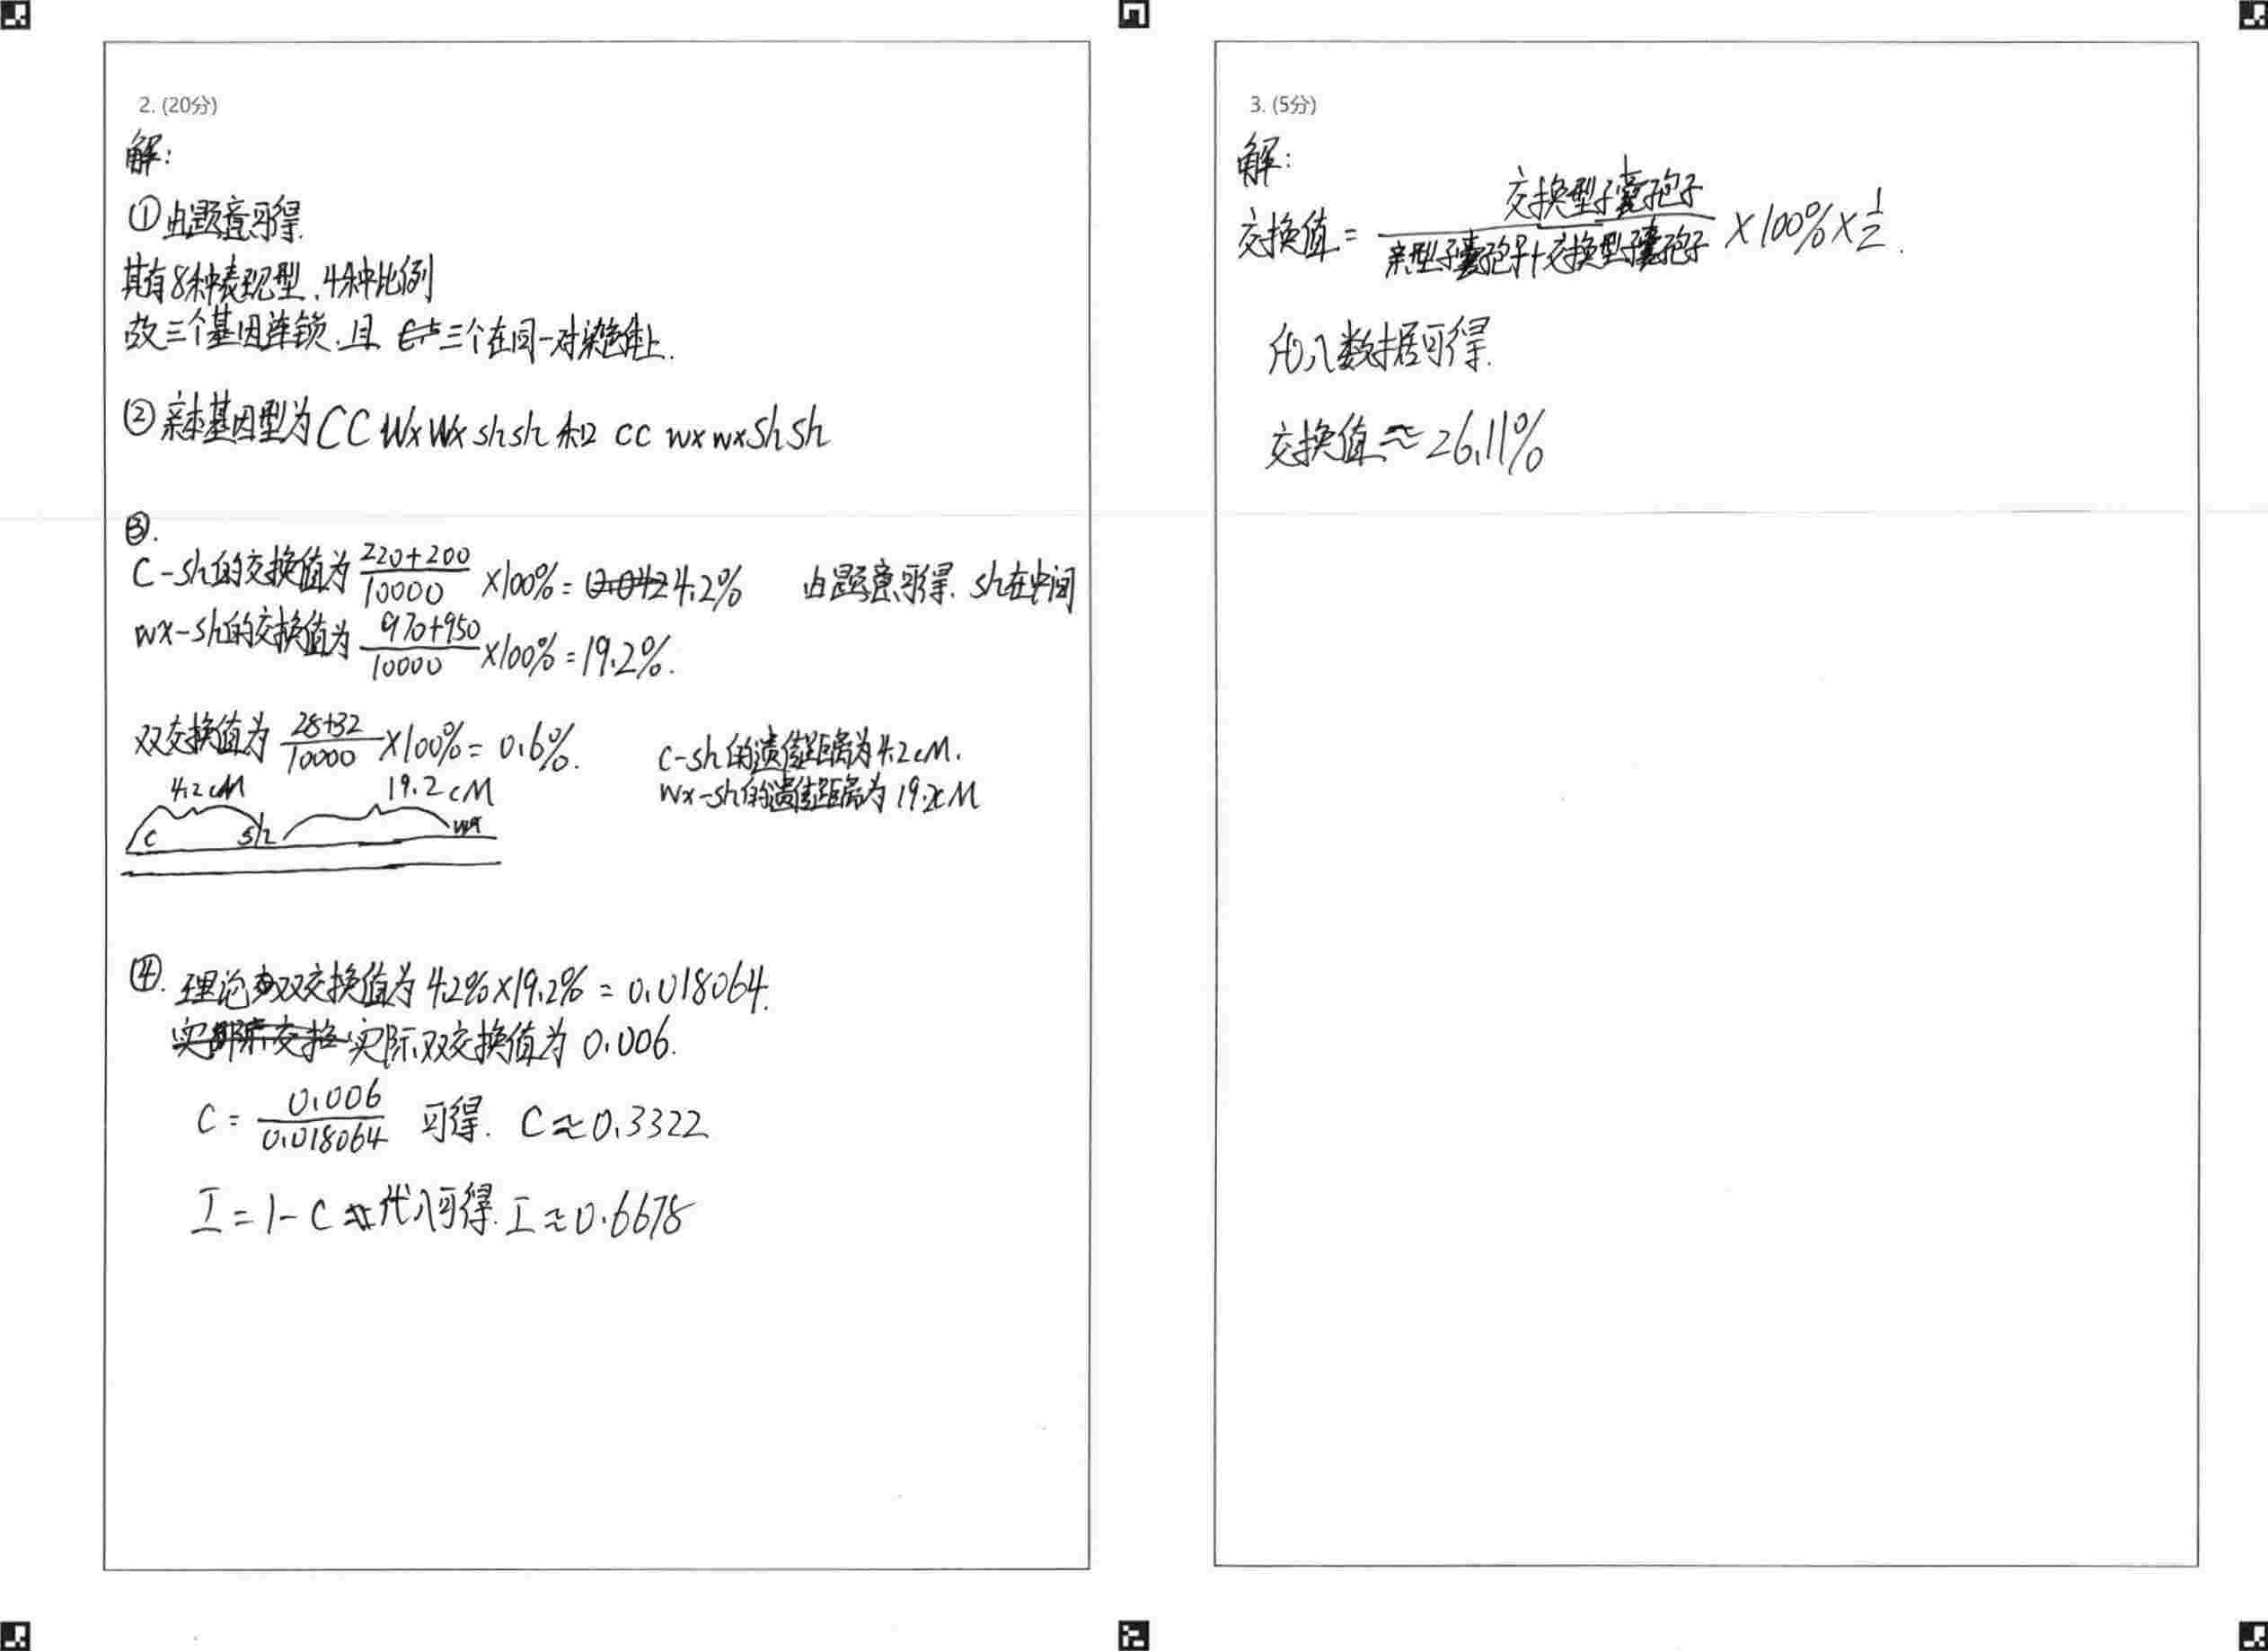 2. (20分)
解:
①由题意可得
其有8种表现型,4种比例
故三个基因连锁.且三个在同一对染色体上.
②亲本基因型为CC WxWx shsh 和 cc wxwxShSh
③.
C-sh的交换值为 220+200/10000 ×100%= 4.2% 由题意可得. sh在中间
wx-sh的交换值为 970+950/10000 ×100%=19.2%.
双交换值为 28+32/10000 ×100%= 0.6%.
C-sh的遗传距离为4.2cM.
wx-sh的遗传距离为19.2cM
4.2cM 19.2cM
C sh wx
④. 理论双交换值为4.2%×19.2% = 0.018064.
实际双交换值为 0.006.
C = 0.006/0.018064 可得. C≈0.3322
I =1-C 代入可得. I≈0.6678
3. (5分)
解:
交换值= 交换型子囊孢子/亲型子囊孢子+交换型子囊孢子 ×100%×1/2.
代入数据可得.
交换值≈26.11%